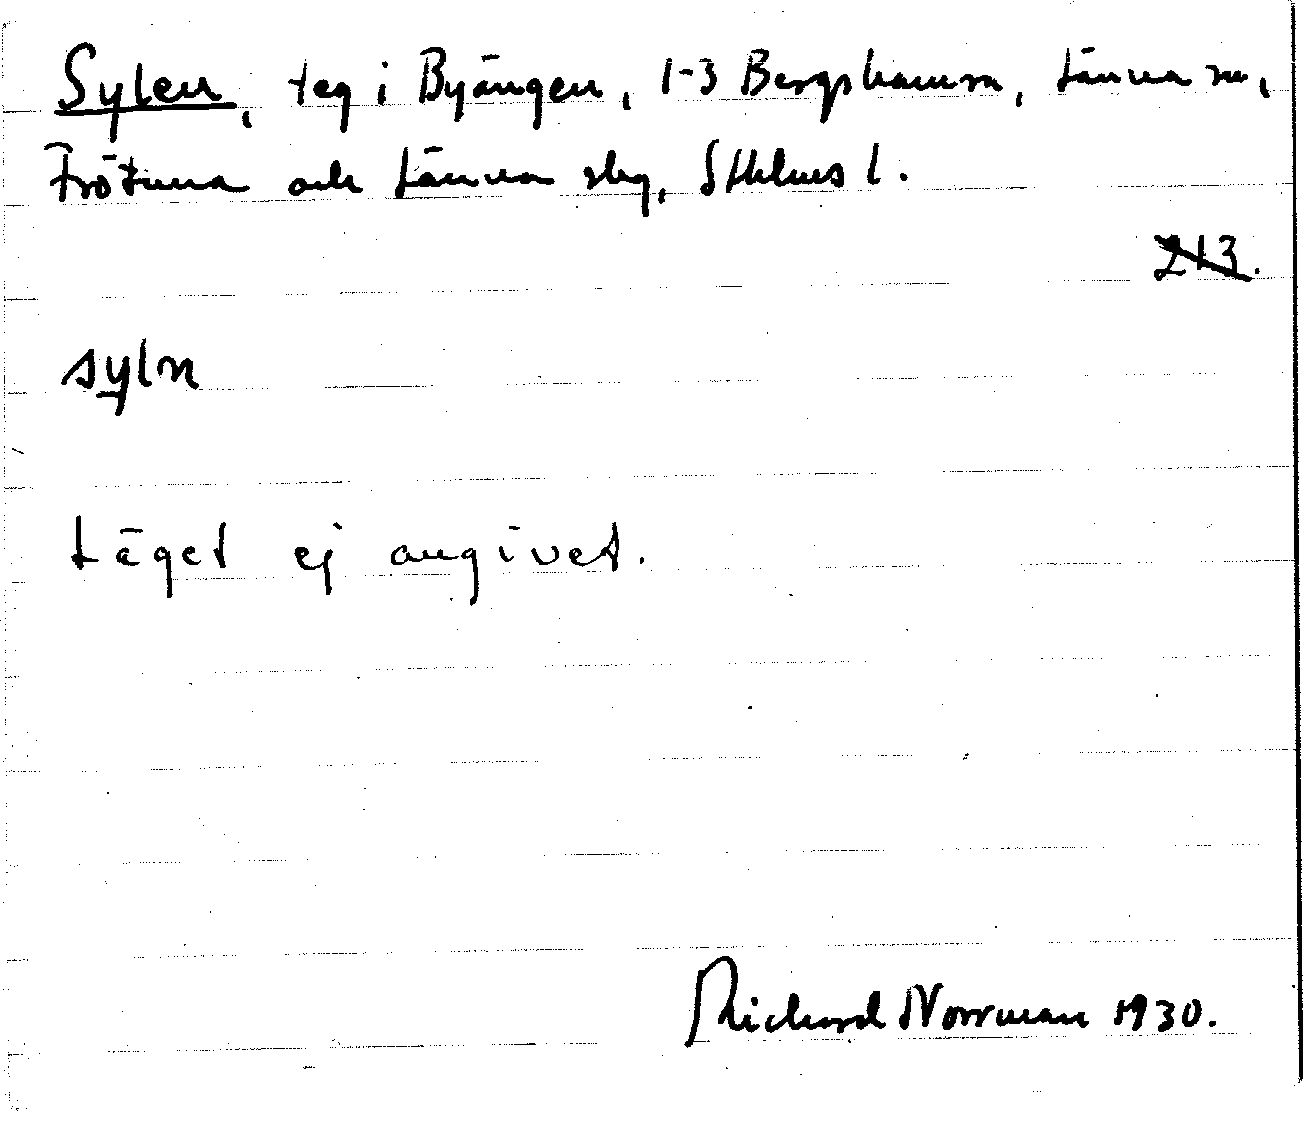 Sylen, teg i Byängen, 1-3 Bergshamra, Länna sn,
Frötuna och Länna slg, Sthlms l.
213.
syln
Läget ej angivet.
Richard Norrman 1930.